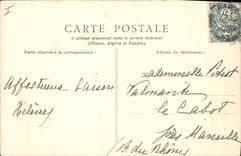 CARTE POSTALE
à utiliser seulement dans le service intérieur
(France, Algérie et Tunisie)
Partie réservée à la correspondance:
Adresse du destinataire:
Affectueux baisers
Hélène
Mademoiselle
Valmante
Le Cabot
près Marseille
B. du Rhône